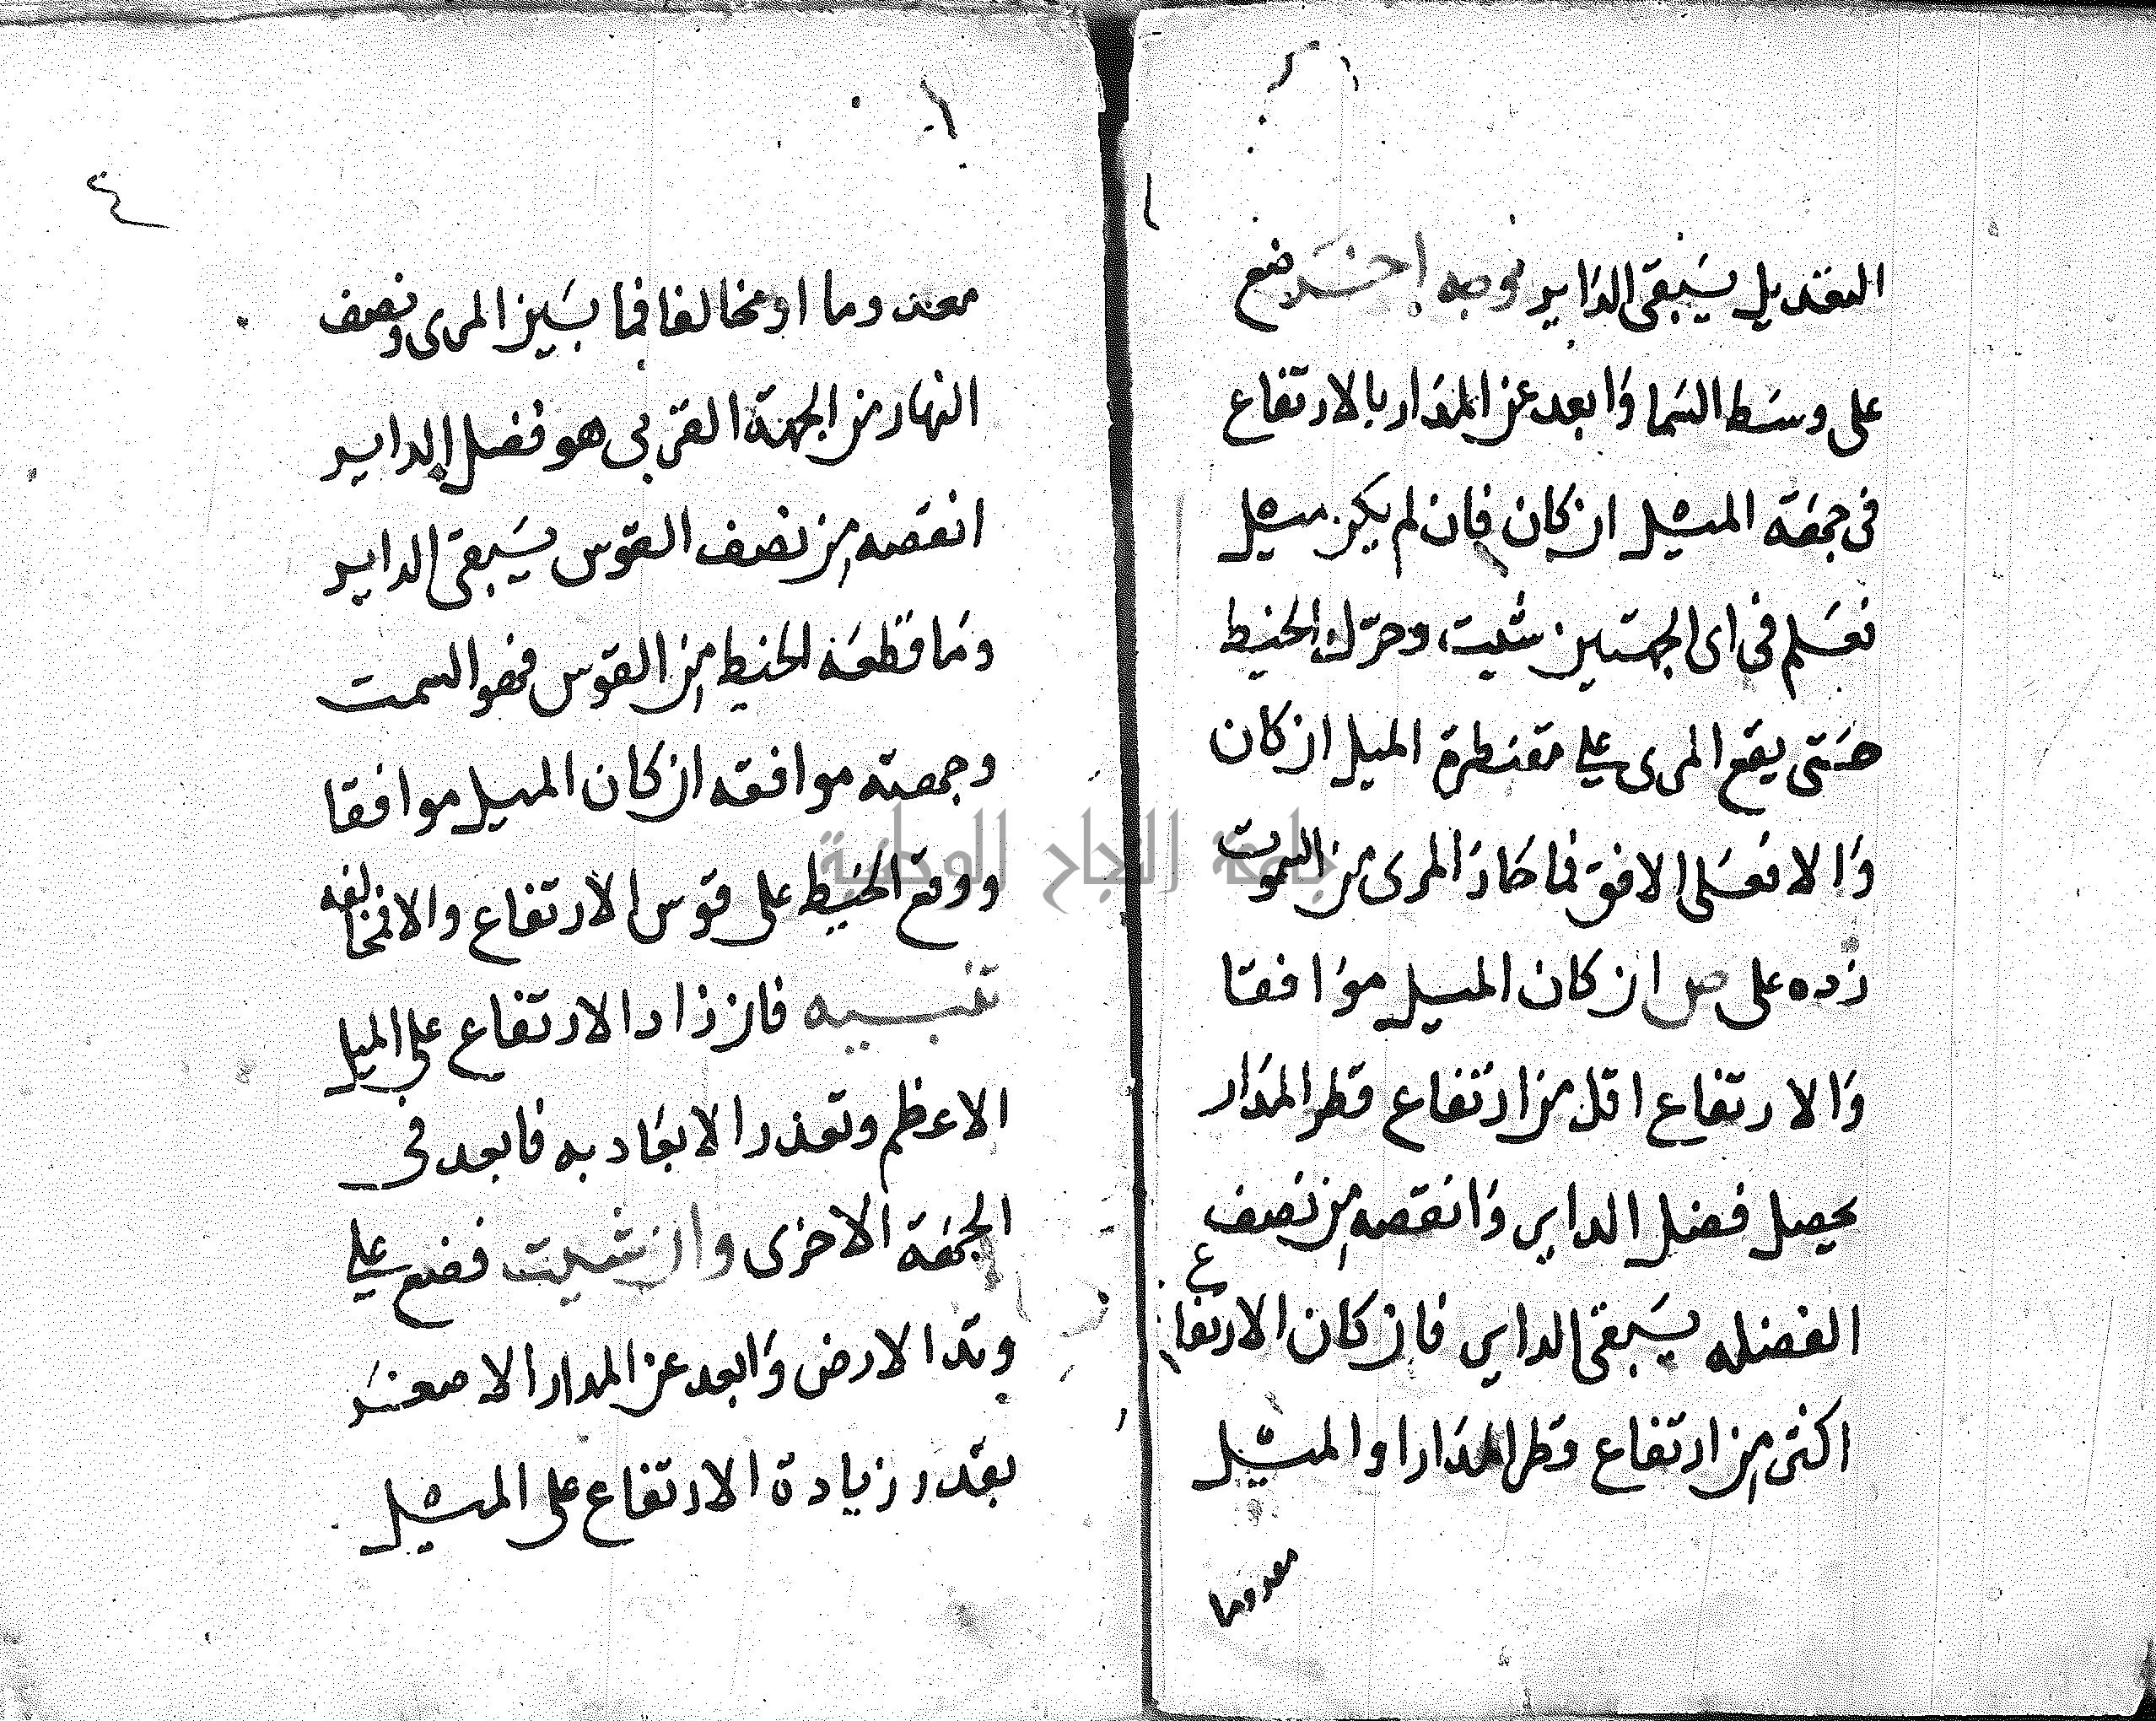 التعديل يبقى الداير نوجه اخر ضع
على وسط السما وابعد عن المدار بالارتفاع
فى جهة الميل ان كان فان لم يكن ميل
فعلم فى اى الجهتين شيت وحرك الخيط
حتى يقع المرى على مقنطرة الميل ان كان
والا فعلى الافق فما حاز المرى من السموت
زده على ص ان كان الميل موافقا
والارتفاع اقل من ارتفاع قطر المدار
يحصل فضل الداير وانقصه من نصف
الفضله يبقى الداير فان كان الارتفاع
اكثر من ارتفاع قطر المدار او الميل
معدوما
٤
معدوما او مخالفا فما بين المرى ونصف
النهار من الجهة القربى هو فضل الداير
انقصه من نصف القوس يبقى الداير
وما قطعه الخيط من القوس فهو السمت
وجهته موافقه ان كان الميل موافقا
ووقع الخيط على قوس الارتفاع والا فمخالفه
تنبيه فان زاد الارتفاع على الميل
الاعظم وتعذر الابعاد به فابعد فى
الجهة الاخرى وان شيت فضع على
وتد الارض وابعد عن المدار الاصغر
بقدر زيادة الارتفاع على الميل
جامعة النجاح الوطنية